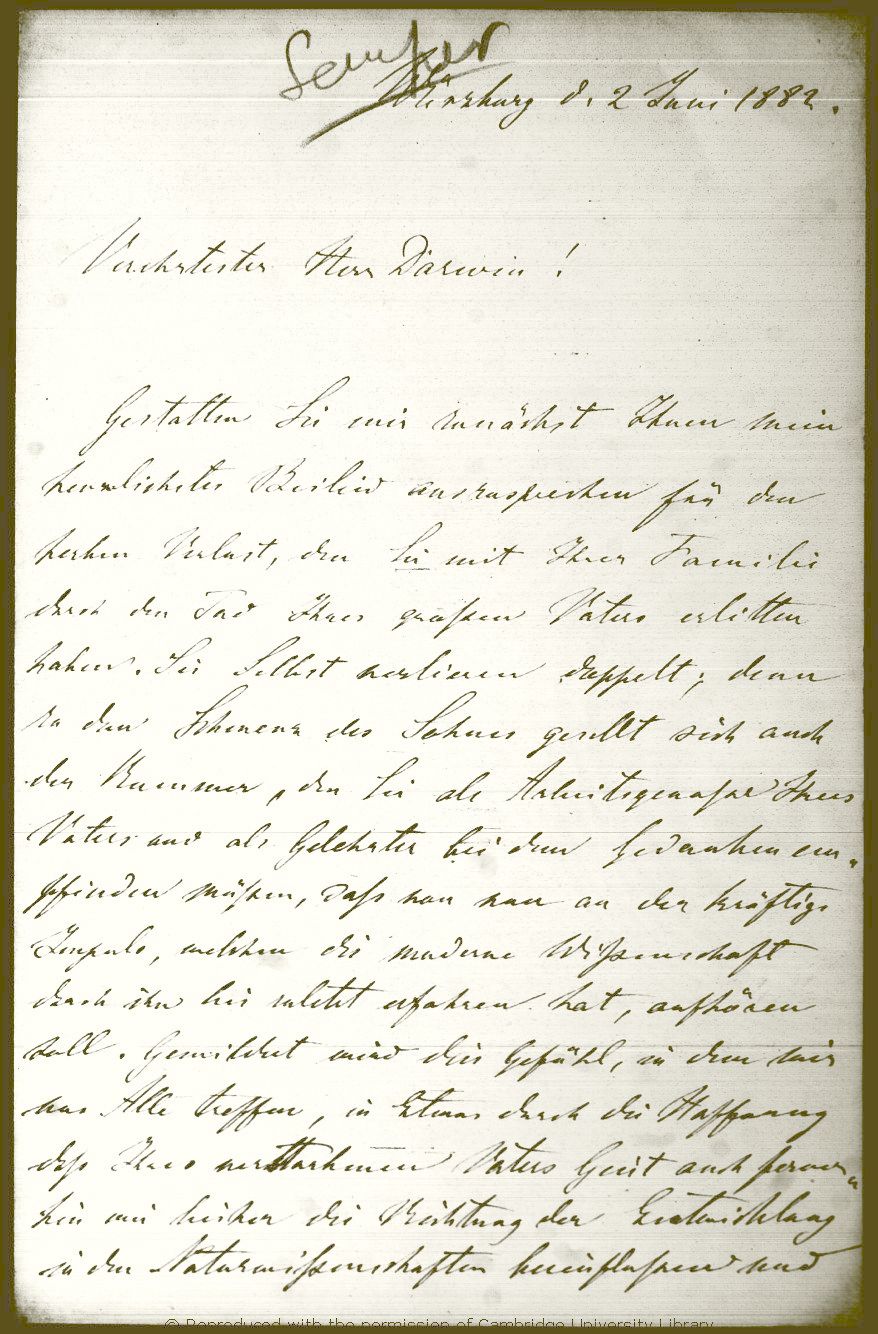 Semper
Würzburg d. 2 Juni 1882.
Verehrtester Herr Darwin!
Gestatten Sie mir zunächst Ihnen mein
herzlichstes Beileid auszusprechen für den
herben Verlust, den Sie mit Ihrer Familie
durch den Tod Ihres großen Vaters erlitten
haben. Sie Selbst verlieren doppelt; denn
zu dem Schmerz des Sohnes gesellt sich auch
der Kummer, den Sie als Arbeitsgenosse Ihres
Vaters und als Gelehrter bei dem Gedanken em-
pfinden müßen, daß von nun an der kräftige
Impuls, welchen die moderne Wißenschaft
durch ihn bis zuletzt erfahren hat, aufhören
soll. Gemildert wird dies Gefühl, in dem wir
uns Alle treffen, in Etwas durch die Hoffnung
daß Ihres verstorbenen Vaters Geist auch ferner-
hin wie bisher die Richtung der Entwicklung
in den Naturwißenschaften beeinflußen und
© Reproduced with the permission of Cambridge University Library